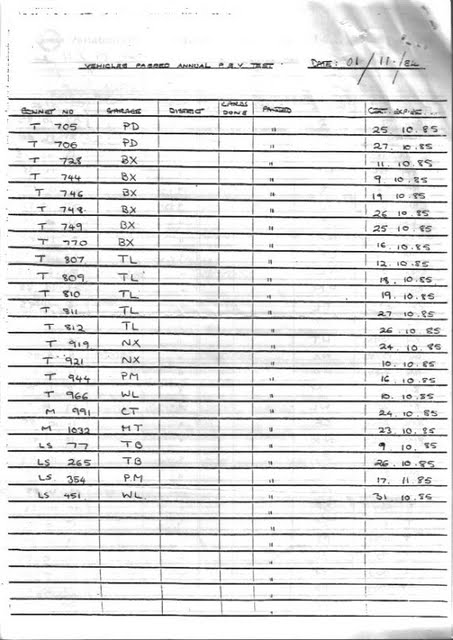 VEHICLES PASSED ANNUAL P.S.V TEST DATE: 01/11/84
BONNET NO GARAGE DISTRICT CARDS DONE PASSED
T 705 PD " 25. 10. 85
T 706 PD " 27. 10. 85
T 728 BX " 11. 10. 85
T 744 BX " 9. 10. 85
T 746 BX " 19. 10. 85
T 748 BX " 26. 10. 85
T 749 BX " 25. 10. 85
T 770 BX " 16. 10. 85
T 807 TL " 12. 10. 85
T 809 TL " 18. 10. 85
T 810 TL " 19. 10. 85
T 811 TL " 27. 10. 85
T 812 TL " 26. 10. 85
T 919 NX " 24. 10. 85
T 921 NX " 10. 10. 85
T 944 PM " 16. 10. 85
T 966 WL " 10. 10. 85
M 991 CT " 24. 10. 85
M 1032 MT " 23. 10. 85
LS 77 TB " 9. 10. 85
LS 265 TB " 26. 10. 85
LS 354 P.M " 17. 11. 85
LS 451 WL " 31. 10. 85
"
"
"
"
"
"
"